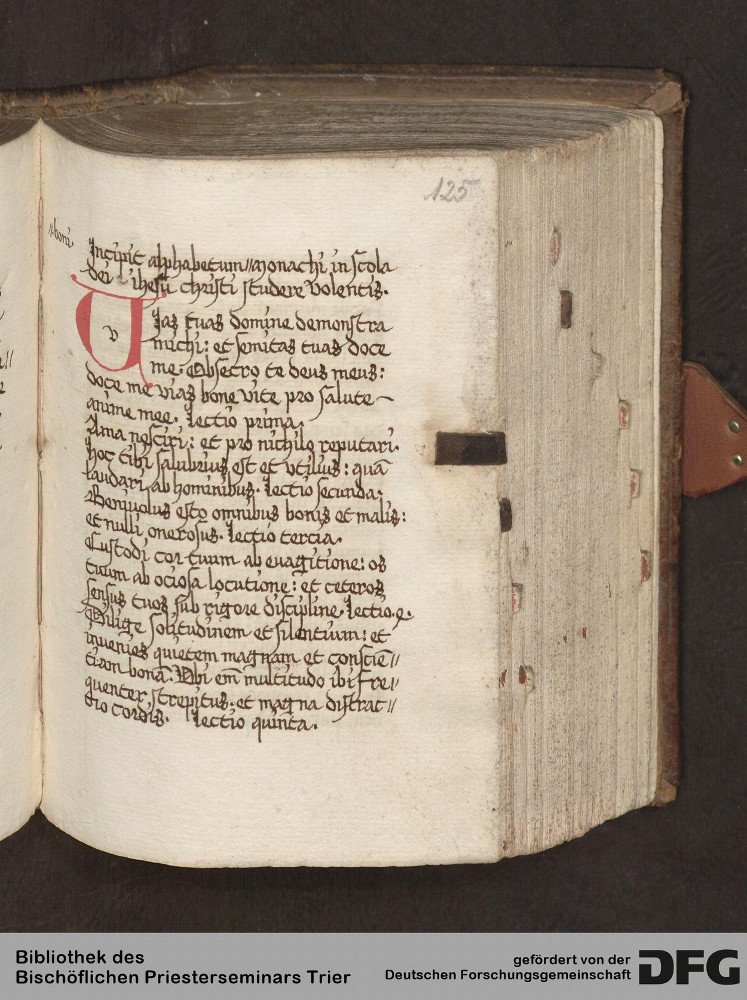 125
boni
Incipit alphabetum // monachi in scola
dei ihesu christi studere volentis.
v
Vias tuas domine demonstra
michi: et semitas tuas doce
me. Obsecro te deus meus:
doce me vias bone vite pro salute
anime mee. lectio prima.
Ama nesciri: et pro nichilo reputari.
hoc tibi salubrius est et vtilius: quā
laudari ab hominibus. lectio secunda.
Beniuolus esto omnibus bonis et malis:
et nulli onerosus. lectio tercia.
Custodi cor tuum ab euagitione: os
tuum ab ociosa locutione: et ceteros
sensus tuos sub rigore discipline. lectio .4.
Dilige solitudinem et silentium: et
inuenies quietem magnam et consciē//
tiam bonā. Vbi em̄ multitudo ibi fre//
quenter strepitus: et magna distrac//
tio cordis. lectio quinta.
Bibliothek des
Bischöflichen Priesterseminars Trier
gefördert von der
Deutschen Forschungsgemeinschaft
DFG